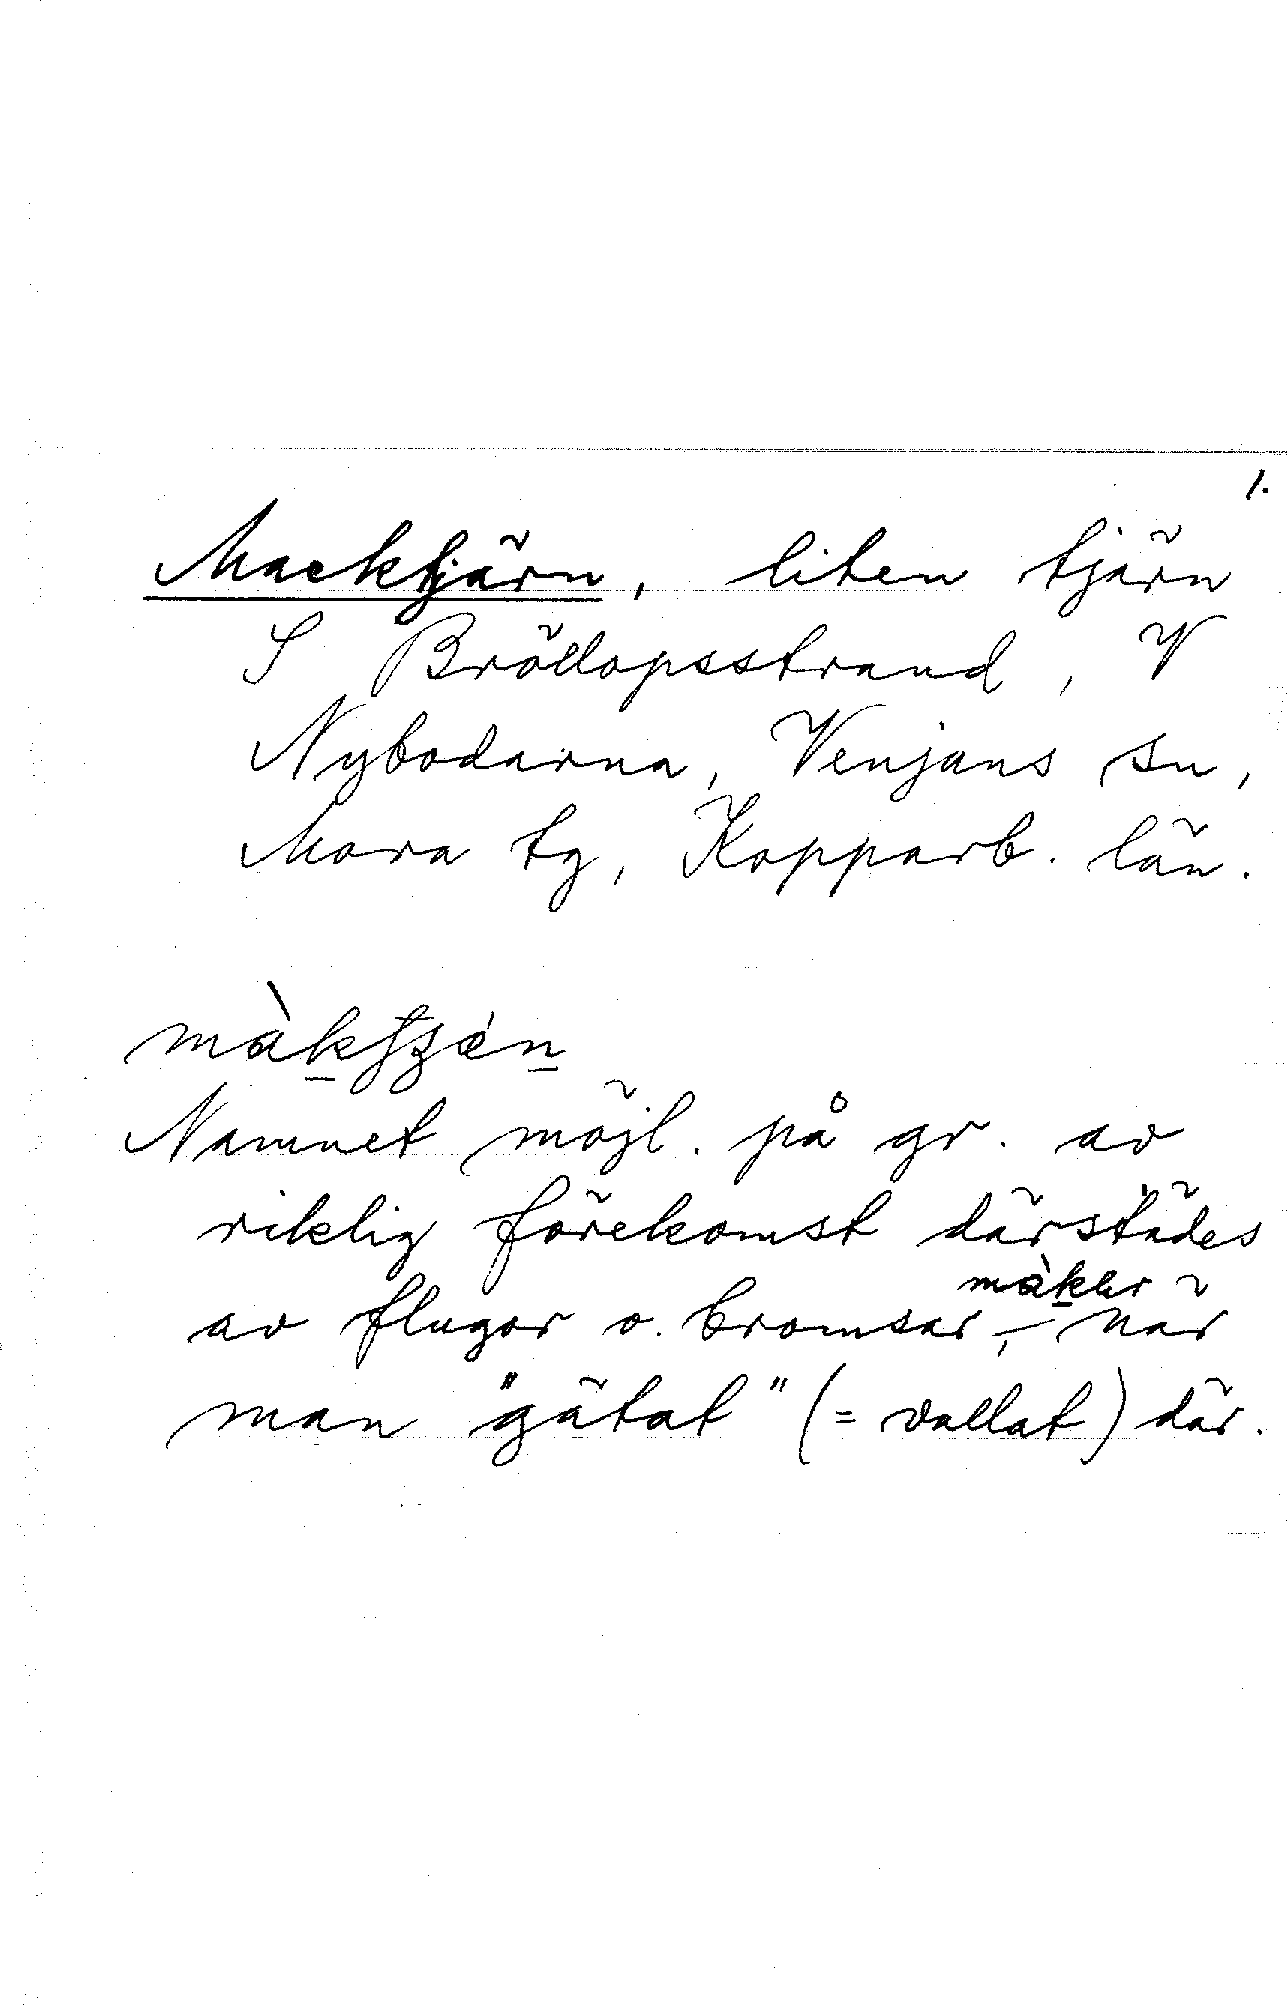 1.
Macktjärn, liten tjärn
S Bröllopsstrand, V
Nybodarna, Venjans sn,
Mora tg, Kopparb. län.
Namnet möjl. på gr. av
riklig förekomst därstädes
av flugor o. bromsar, – när
man "gätat" (= vallat) där.